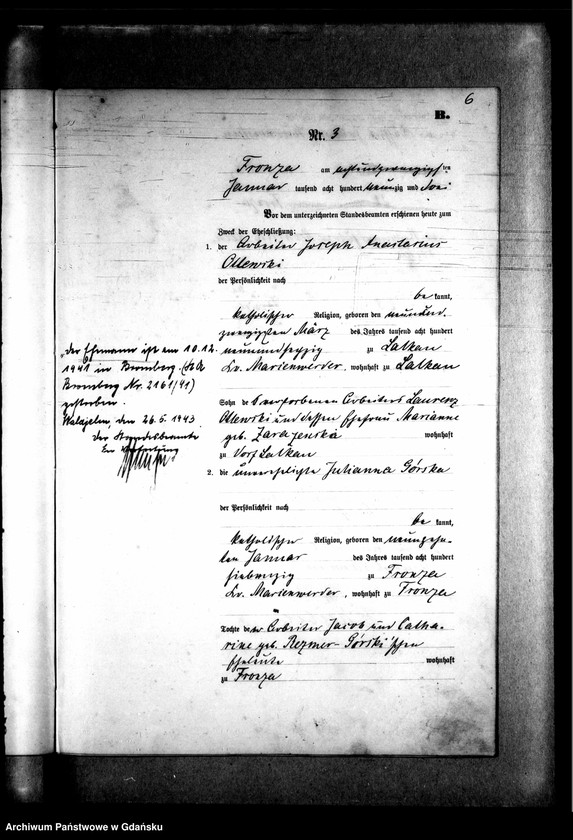 6
B.
Nr. 3
Fronza am achtundzwanzigsten
Januar tausend acht hundert neunzig und drei
Vor dem unterzeichneten Standesbeamten erschienen heute zum
Zweck der Eheschließung:
1. der Arbeiter Joseph Anastasius
Ollewski
der Persönlichkeit nach
be kannt,
katholischer Religion, geboren den neunund-
zwanzigsten März des Jahres tausend acht hundert
neunundsechzig zu Lalkau
Kr. Marienwerder, wohnhaft zu Lalkau
Sohn des verstorbenen Arbeiters Laurenz
Ollewski und dessen Ehefrau Marianne
geb. wohnhaft
zu Dorf Lalkau
2. die unverehelichte Julianna Górska
der Persönlichkeit nach
be kannt,
katholischer Religion, geboren den neunzehn-
ten Januar des Jahres tausend acht hundert
siebenzig zu Fronza
Kr. Marienwerder, wohnhaft zu Fronza
Tochter der Arbeiter Jacob und Catha-
rine geb. Rezmer Górski'schen
Eheleute wohnhaft
zu Fronza
"Der Ehemann ist am 10.12.
1941 in Bromberg (StA
Bromberg Nr. 2161/41)
gestorben.
den 26.5.1943
Der Standesbeamte
In Vertretung
Archiwum Państwowe w Gdańsku